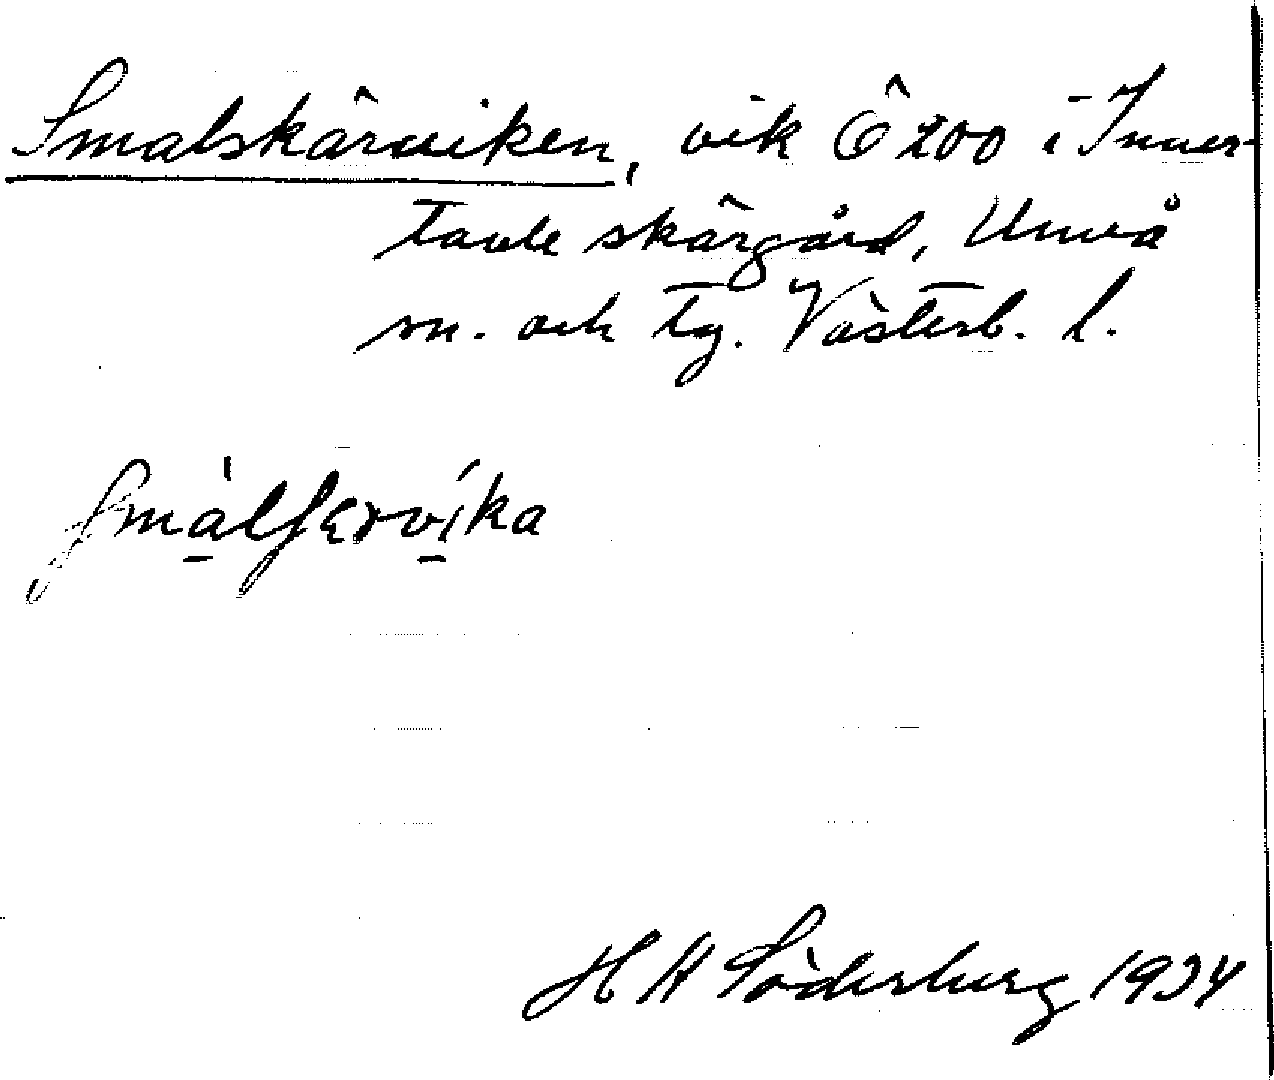 Smalskärviken, vik Ö 200 i Inner-
tavle skärgård, Umeå
sn. och tg. Västerb. l.
smálʃɛrvíka
H H Söderberg 1934